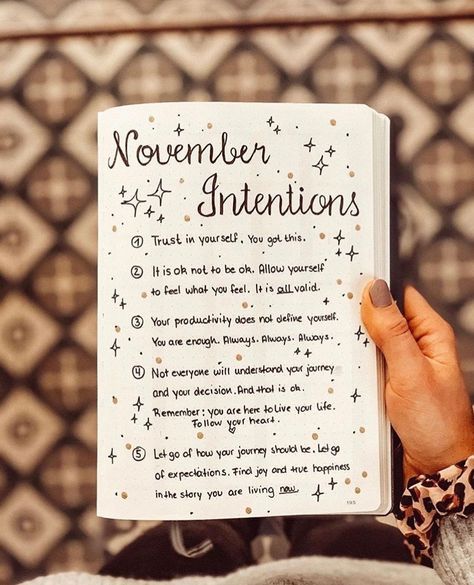 November
Intentions
1 Trust in yourself. You got this.
2 It is ok not to be ok. Allow yourself
to feel what you feel. It is all valid.
3 Your productivity does not define yourself.
You are enough. Always. Always. Always.
4 Not everyone will understand your journey
and your decision. And that is ok.
Remember: you are here to live your life.
Follow your heart.
5 Let go of how your journey should be. Let go
of expectations. Find joy and true happiness
in the story you are living now.
195